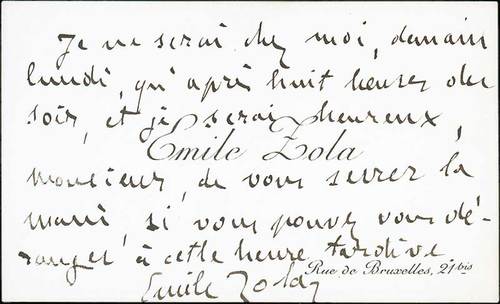 Je ne serai chez moi, demain
lundi, qu'après huit heures du
soir, et je serai heureux,
Emile Zola
monsieur, de vous serrer la
main, si vous pouvez vous dé-
ranger à cette heure tardive.
Rue de Bruxelles, 21 bis
Emile Zola